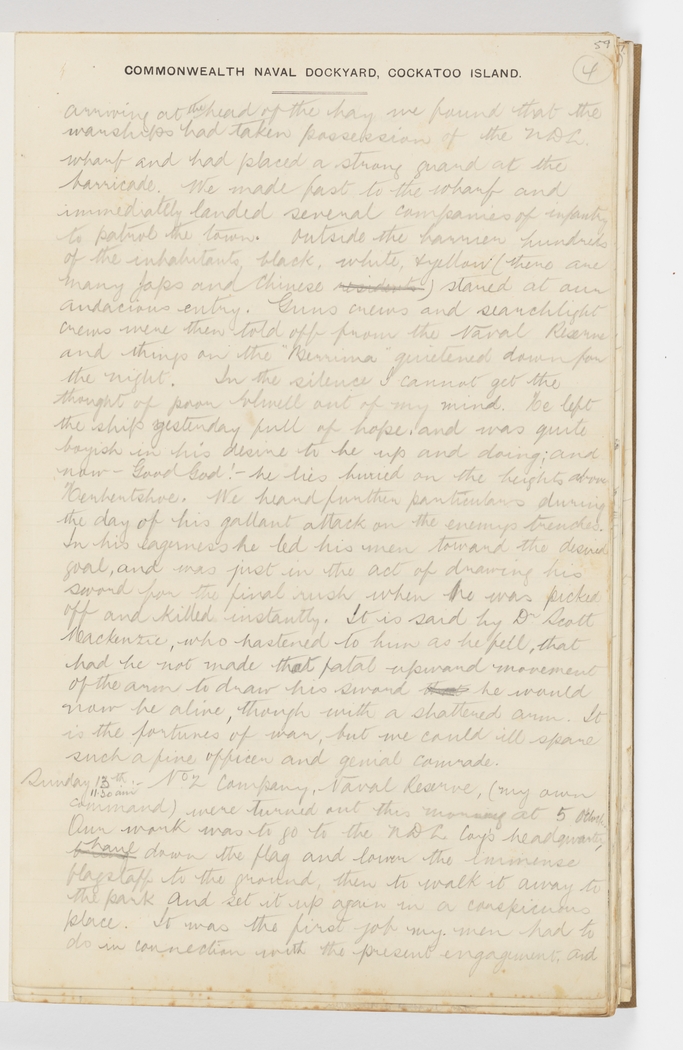 59
4
COMMONWEALTH NAVAL DOCKYARD, COCKATOO ISLAND.
arriving at the head of the bay we found that the
warships had taken possession of the NDL.
wharf and had placed a strong guard at the
barricade. We made fast to the wharf and
immediately landed several companies of infantry
to patrol the town. Outside the barrier hundreds
of the inhabitants, black, white, & yellow (there are
many Japs and Chinese residents) stared at our
audacious entry. Guns crews and searchlight
crews were then told off from the Naval Reserve
and things on the "Berrima" quietened down for
the night. In the silence I cannot get the
thought of poor Elwell out of my mind. He left
the ship yesterday full of hope, and was quite
boyish in his desire to be up and doing; and
now - Good God! - he lies buried on the heights above
Herbertshoe. We heard further particulars during
the day of his gallant attack on the enemys trenches.
In his eagerness he led his men toward the desired
goal, and was just in the act of drawing his
sword for the final rush when he was picked
off and killed instantly. It is said by Dr Scott
Mackenzie, who hastened to him as he fell, that
had he not made that fatal upward movement
of the arm to draw his sword that he would
now be alive, though with a shattered arm. It
is the fortunes of war, but we could ill spare
such a fine officer and genial comrade.
Sunday 13th:- No 2 Company, Naval Reserve, (my own
11.30 am
command) were turned out this morning at 5 Oclock
Our work was to go to the NDL Coy's headquarters,
down the flag and lower the immense
flagstaff to the ground, then to walk it away to
the park and set it up again in a conspicuous
place. It was the first job my men had to
do in connection with the present engagement, and